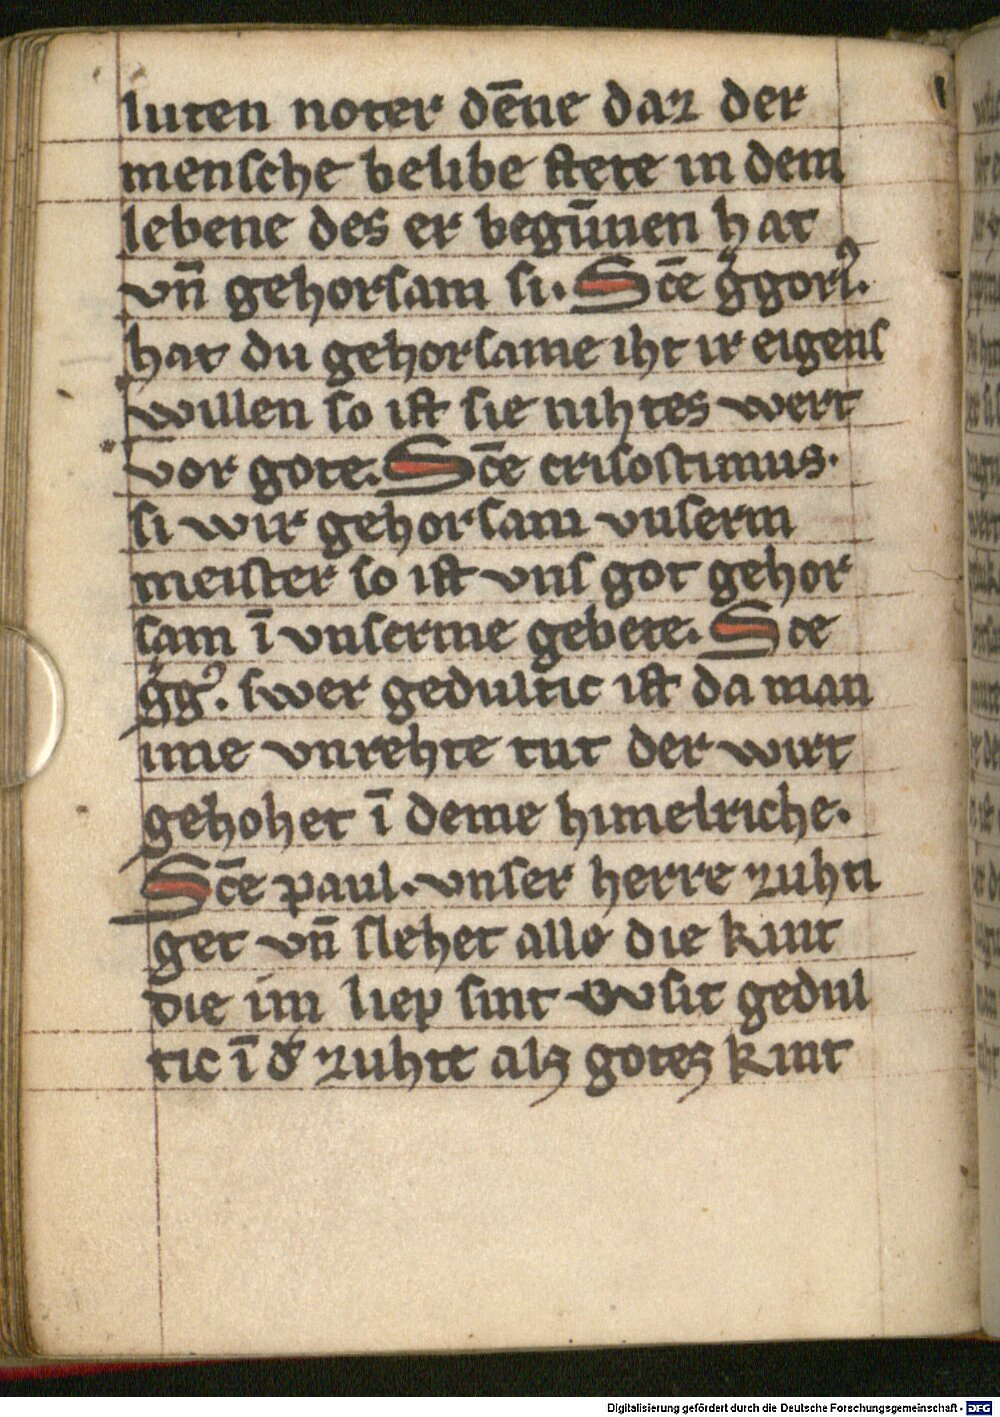 luten noter dēne daz der
mensche belibe stete in dem
lebene des er begūnen hat
vn̄ gehorsam si. Sc̄e g̊gorꝰ.
hat du gehorsame iht ir eigens
willen so ist sie nihtes wert
vor gote. Sc̄e crisostimus.
si wir gehorsam vnserm
meister so ist vns got gehor
sam ī vnserme gebete. Sce
g̊gꝰ. swer gedultic ist da man
ime vnrehte tut der wirt
gehohet ī deme himelriche.
Sc̄e paul. vnser herre zuhti
get vn̄ slehet alle die kint
die im liep sint vvsit gedul
tic ī dˢ zuhte als gotes kint
Digitalisierung gefördert durch die Deutsche Forschungsgemeinschaft - DFG